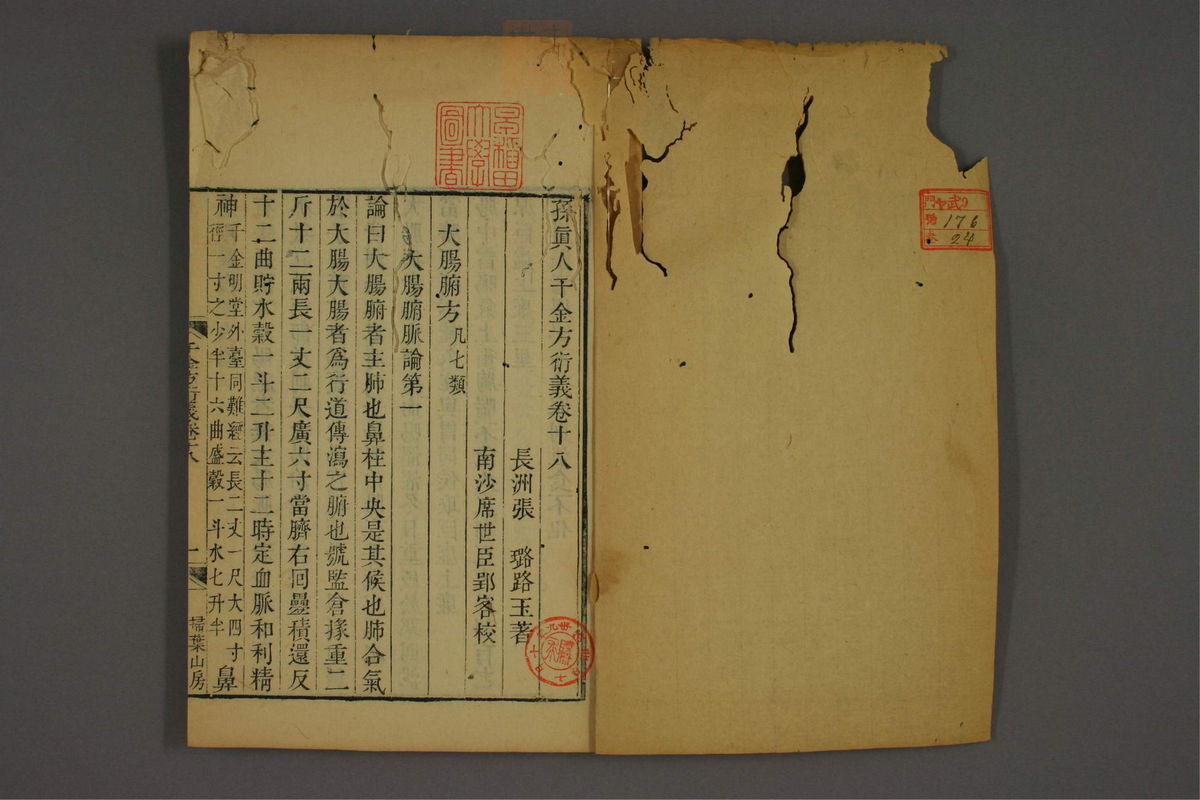 孫眞人千金方衍義卷十八
長洲張　璐路玉著
南沙席世臣郢客校
大腸腑方凡七類
大腸腑脈論第一
論曰大腸腑者主肺也鼻柱中央是其候也肺合氣
於大腸大腸者爲行道傳瀉之腑也號監倉掾重二
斤十二兩長一丈二尺廣六寸當臍右囘疊積還反
十二曲貯水穀一斗二升主十二時定血脈和利精
神千金明堂外臺同難經云長二丈一尺大四寸
徑一寸之少半十六曲盛穀一斗水七升半鼻
千金方衍義卷十八
一
掃葉山房
早稻田
大學
圖書
176
24